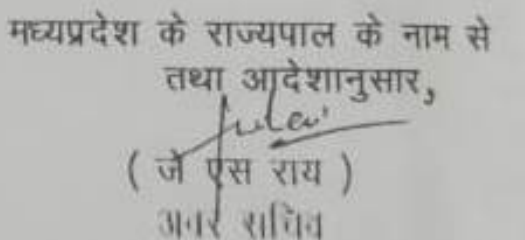 मध्यप्रदेश के राज्यपाल के नाम से
तथा आदेशानुसार,
( जे एस राय )
अवर सचिव